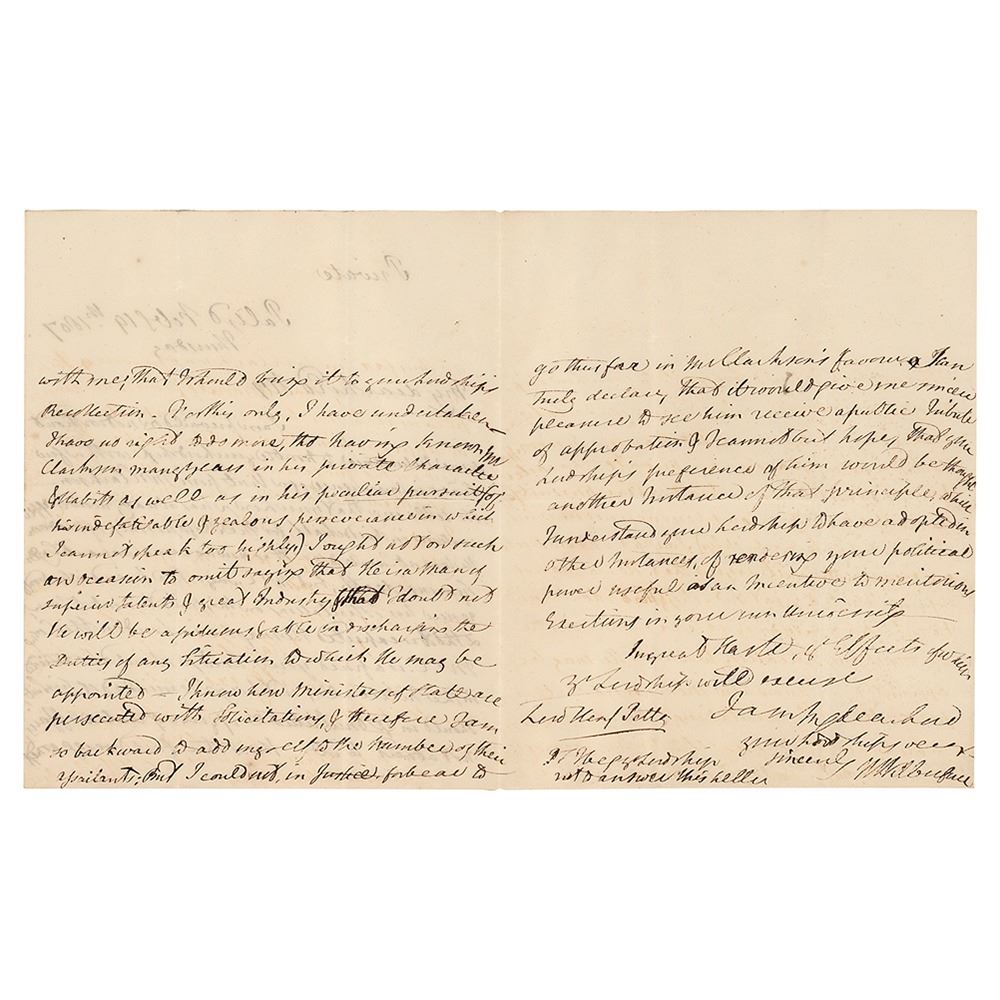 Private
Pal: Yd Feb 19th 1807
Thursday
with me, that I should bring it to your Lordship's
Recollection. For this only, I have undertaken
I have no right to do more, tho' having known Mr
Clarkson many years in his private Character
& Habits as well as in his peculiar pursuit (for
his indefatigable & zealous perseverance in which
I cannot speak too highly) I ought not on such
an occasion to omit saying that He is a Man of
superior talents & great Industry & that I doubt not
He will be assiduous & able in discharging the
Duties of any Situation to which He may be
appointed - I know how Ministers of State are
persecuted with Solicitations, & therefore I am
so backward to add myself to the number of their
assailants. But I could not, in Justice, forbear to
go thus far in Mr Clarkson's favour. & I can
truly declare, that it would give me sincere
pleasure to see him receive a public Tribute
of approbation & I cannot but hope, that your
Lordship's preference of him would be thought
another Instance of that principle, which
I understand your Lordship to have adopted in
other Instances, of rendering your political
power useful as an Incentive to meritorious
Exertions in your own University
In great Haste, ye Effects of which
yr Lordship will excuse
I am my dear Lord
your Lordship's very
sincerely
W Wilberforce
Lord Henry Petty
PS I beg yr Lordship
not to answer this Letter